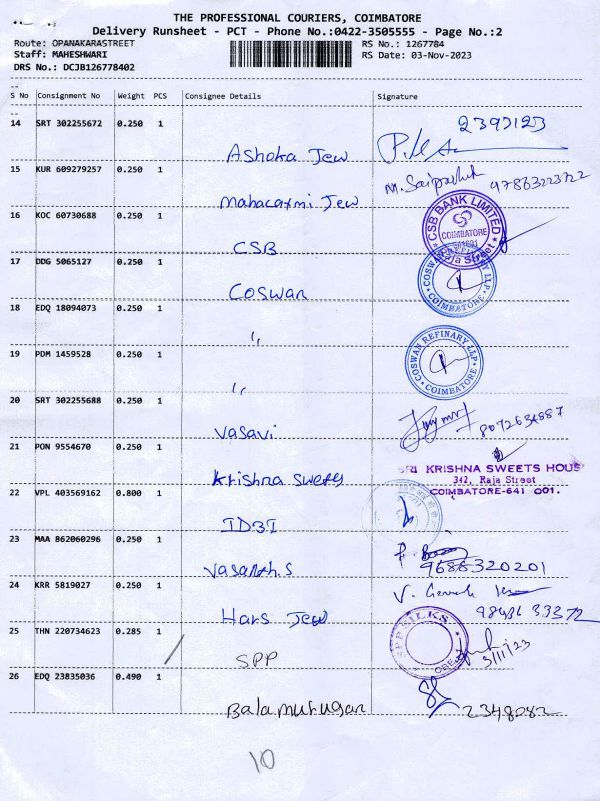 THE PROFESSIONAL COURIERS, COIMBATORE
Delivery Runsheet - PCT - Phone No.:0422-3505555 - Page No.:2
Route: OPANAKARASTREET RS No.: 1267784
Staff: MAHESHWARI RS Date: 03-Nov-2023
DRS No.: DCJB126778402
S No Consignment No Weight PCS Consignee Details Signature
14 SRT 302255672 0.250 1
Ashoka Jew
15 KUR 609279257 0.250 1
Jew
16 KOC 60730688 0.250 1
CSB
CSB BANK LIMITED
COIMBATORE
Raja Street
17 DDG 5065127 0.250 1
Coswan
COSWAN REFINARY LLP
COIMBATORE
18 EDQ 18094073 0.250 1
19 PDM 1459528 0.250 1
COSWAN REFINARY LLP
COIMBATORE
20 SRT 302255688 0.250 1
Vasavi
21 PON 9554670 0.250 1
Krishna sweets
SRI KRISHNA SWEETS HOUS
342, Raja Street
COIMBATORE-641 001.
22 VPL 403569162 0.800 1
IDBI
23 MAA 862060296 0.250 1
Vasanth.S 9686320201
24 KRR 5819027 0.250 1
Hars Jew
25 THN 220734623 0.285 1
SPP
SPP SILKS
3/11/23
26 EDQ 23835036 0.490 1
Balamurugan 2348082
10